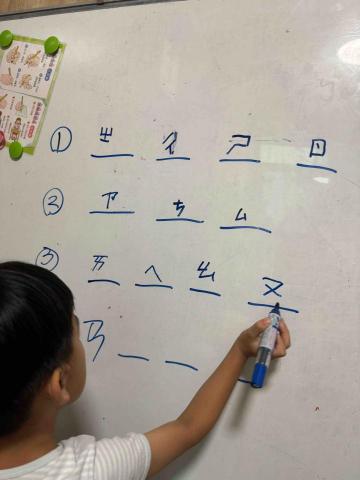 ① ㄓ ㄔ ㄕ ㄖ
② ㄗ ㄘ ㄙ
③ ㄞ ㄟ ㄠ ㄡ
ㄢ